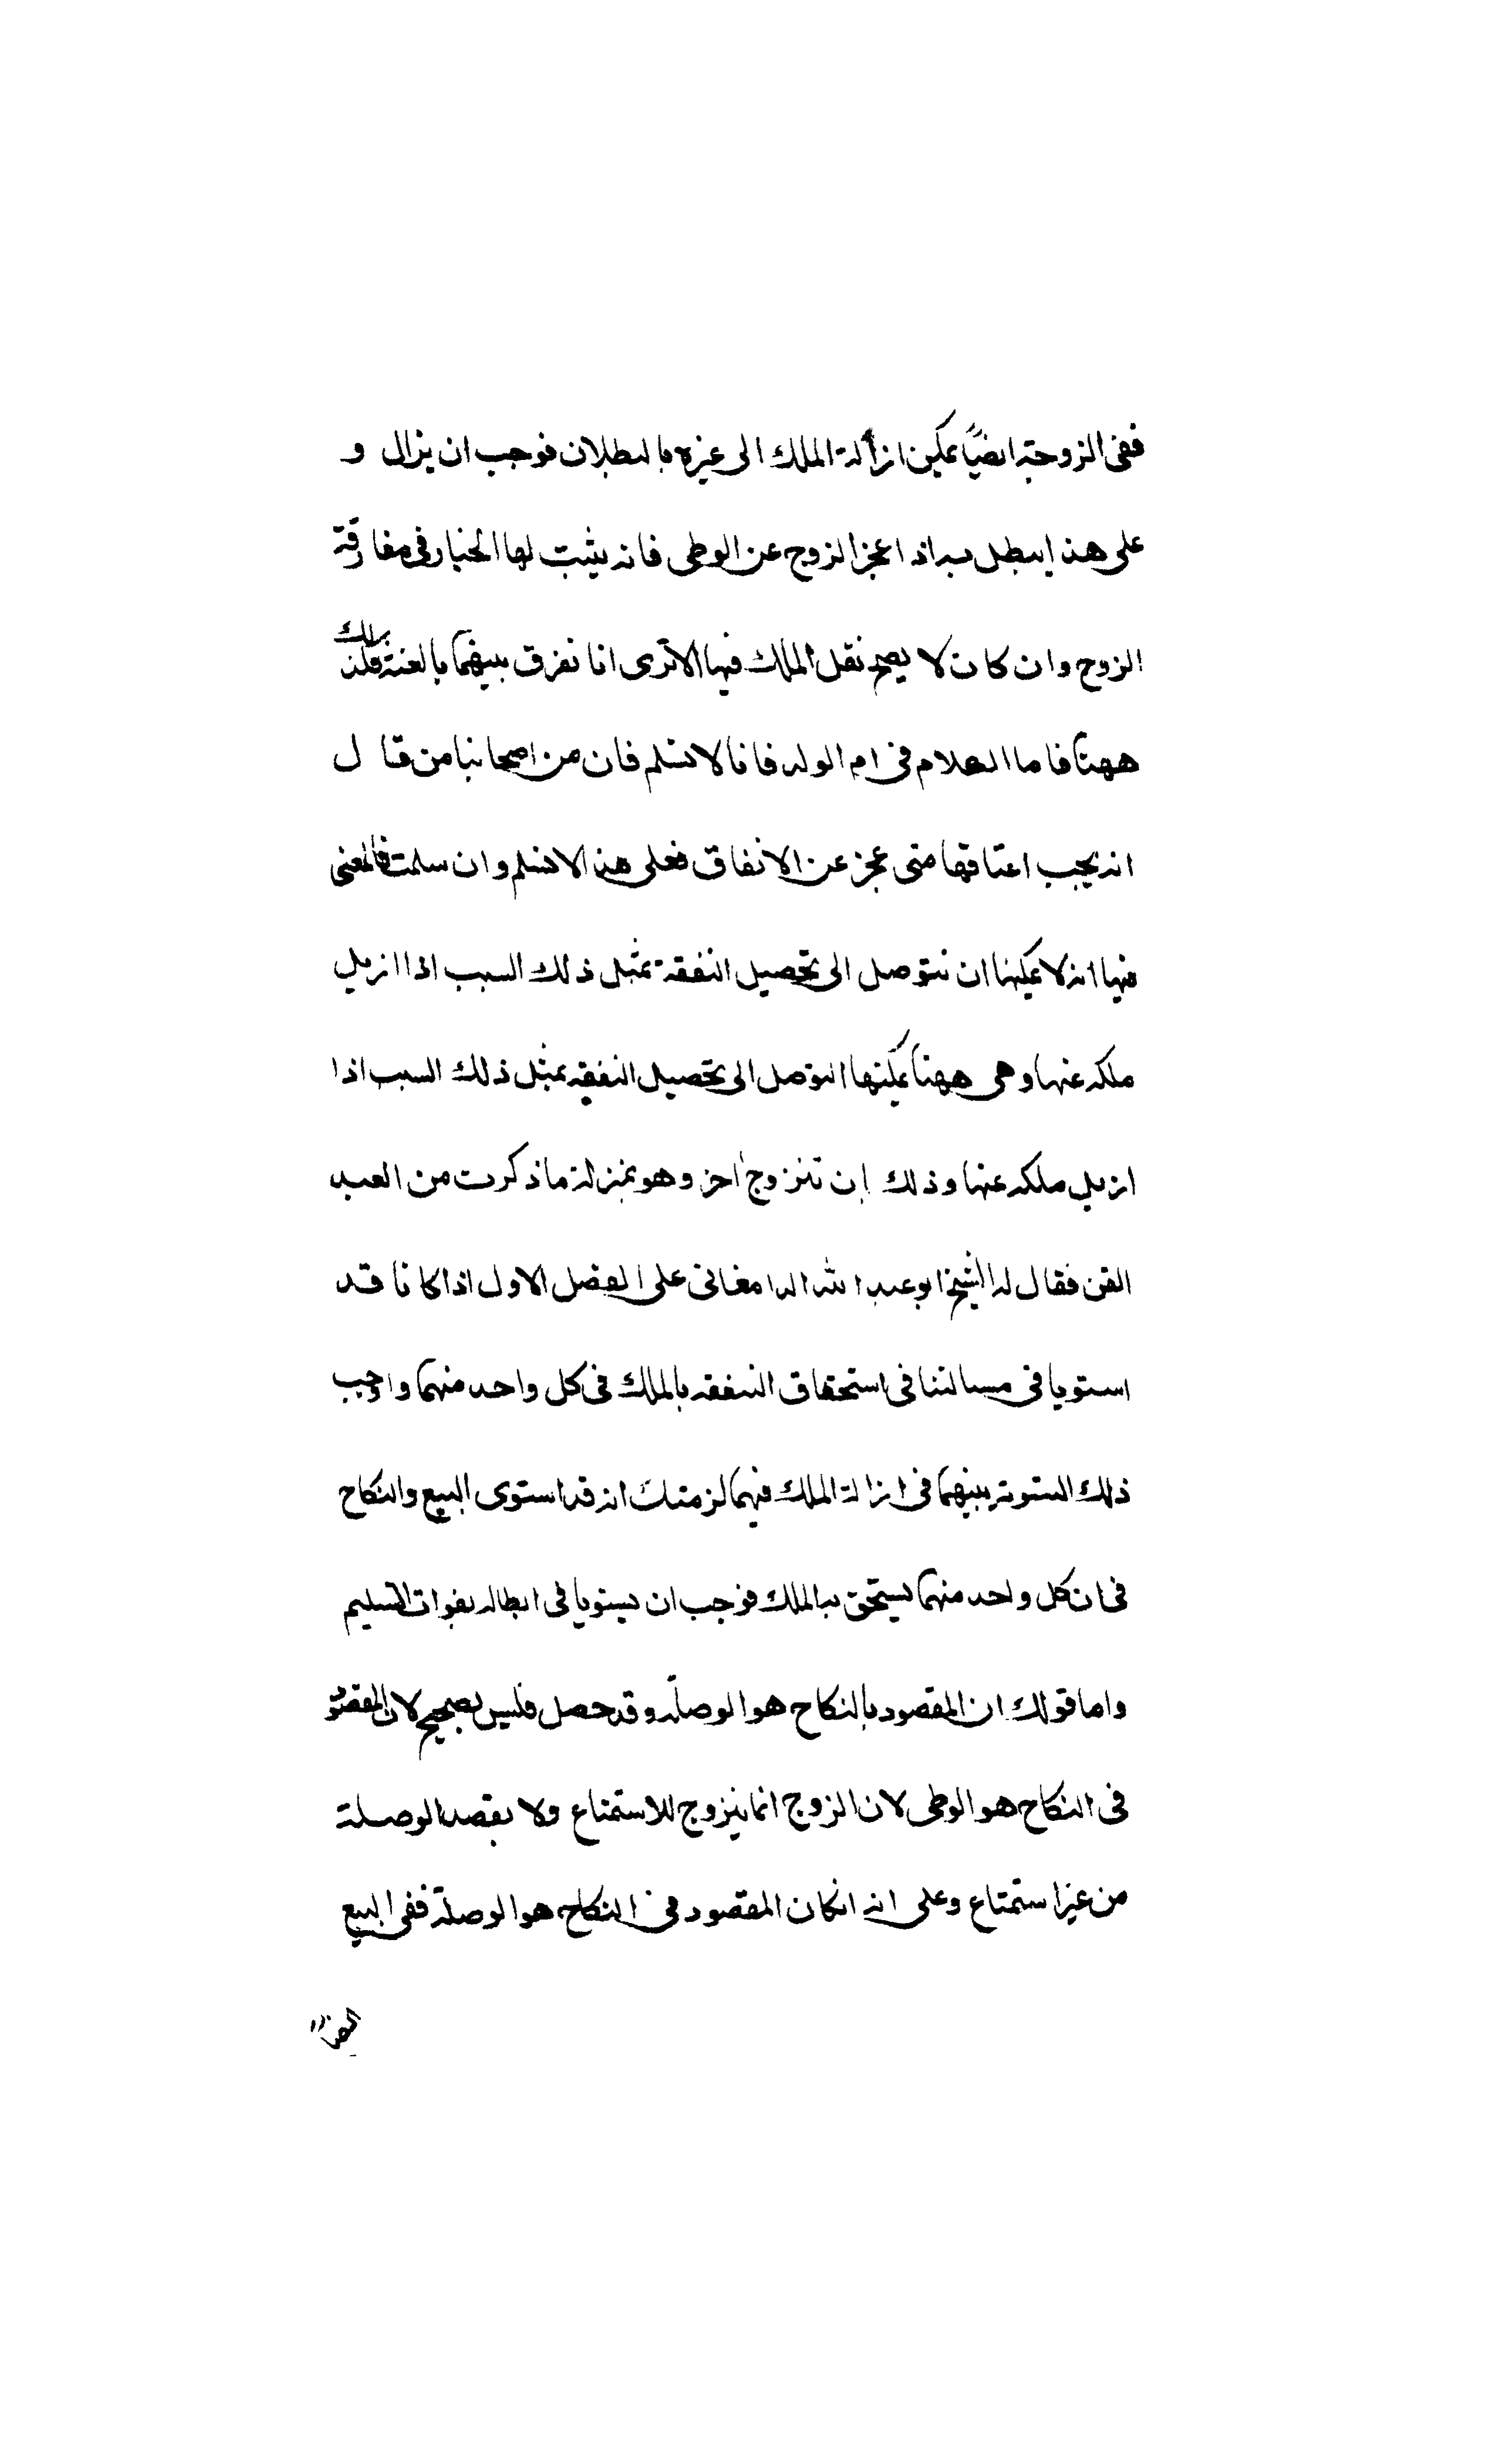 ففى الزوجة ايضًا يمكن ازالة الملك الى غيره بالبطلان فوجب ان يزال و
على هذا يبطل به اذا عجز الزوج عن الوطى فانه يثبت لها الخيار فى مفارقة
الزوج وان كان لا يصح نقل الملك فيها الا ترى انا نفرق بينهما بالعنة
ههنا فاما الكلام فى ام الولد فانا لا نسلم فان من اصحابنا من قال
انه يجب اعتاقها متى عجز عن الانفاق فعلى هذا لا نسلم وان سلمت فالمعنى
فيها انه لا يمكنها ان تتوصل الى تحصيل النفقة بمثل ذلك السبب اذا ازيل
ملكه عنها وهى ههنا يمكنها التوصل الى تحصيل النفقه بمثل ذلك السبب اذا
ازيل ملكه عنها وذلك ان تتزوج آخر وهو بمنزلة ما ذكرت من العبد
القن فقال له الشيخ ابو عبد الله الدامغانى على الفصل الاول اذا كانا قد
استويا فى مسالتنا فى استحقاق النفقه بالملك فى كل واحد منهما واوجب
ذلك التسوية بينهما فى ازالة الملك فيهما لزمتك انه قد استوى البيع والنكاح
فى ان كل واحد منهما يستحق به الملك فوجب ان يستويا فى ابطاله بفوات التسليم
واما قولك ان المقصود بالنكاح هو الوصلة وقد حصل فليس بصحيح لان المقصود
فى النكاح هو الوطى لان الزوج انما يتزوج للاستمتاع ولا يقصد الوصلة
من غير استمتاع وعلى انه انكان المقصود فى النكاح هو الوصلة ففى البيع